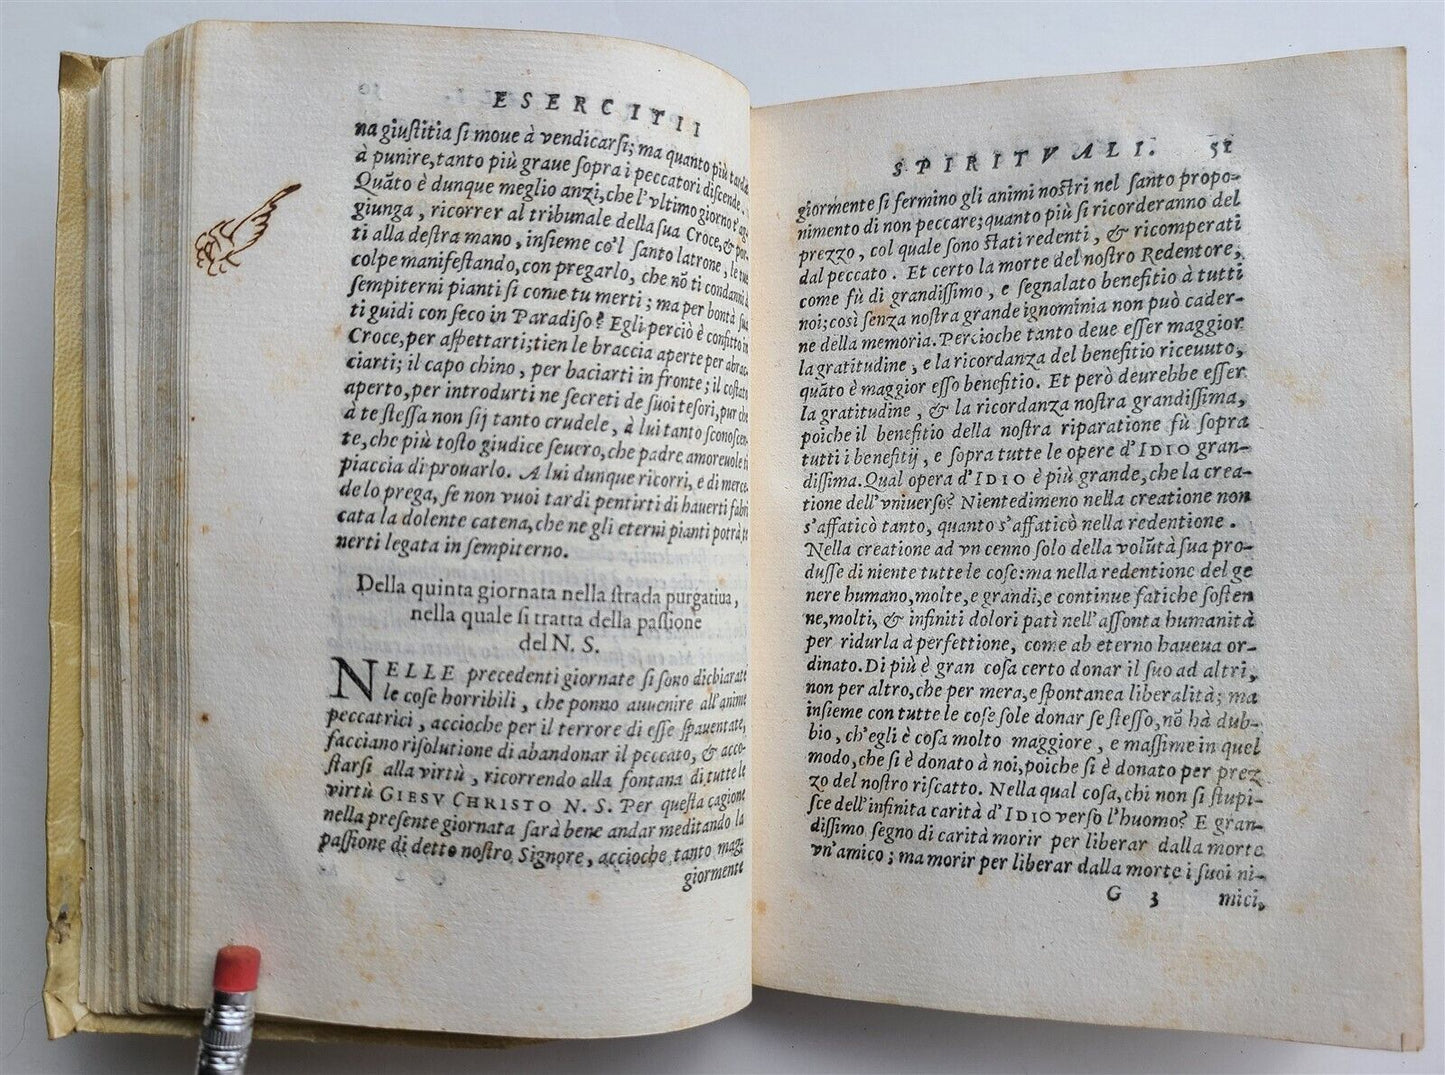 ESERCITII
na giuſtitia ſi moue à vendicarſi; ma quanto più tarda
à punire, tanto più graue ſopra i peccatori diſcende.
Quãto è dunque meglio anzi, che l'vltimo giorno t'ag
giunga, ricorrer al tribunale della ſua Croce, & por-
ti alla deſtra mano, inſieme co'l ſanto latrone, le tue
colpe manifeſtando, con pregarlo, che nõ ti condanni à
ſempiterni pianti ſi come tu merti; ma per bontà ſua
ti guidi con ſeco in Paradiſo? Egli perciò è confitto in
Croce, per aſpettarti; tien le braccia aperte per abrac-
ciarti; il capo chino, per baciarti in fronte; il coſtato
aperto, per introdurti ne ſecreti de ſuoi teſori, pur che
à te ſteſſa non ſij tanto crudele, à lui tanto ſconoſcen-
te, che più toſto giudice ſeuero, che padre amoreuole ti
piaccia di prouarlo. A lui dunque ricorri, e di merce-
de lo prega, ſe non vuoi tardi pentirti di hauerti fabri
cata la dolente catena, che ne gli eterni pianti potrà te
nerti legata in ſempiterno.
Della quinta giornata nella ſtrada purgatiua,
nella quale ſi tratta della paſſione
del N. S.
NELLE precedenti giornate ſi ſono dichiarate
le coſe horribili, che ponno auuenire all'anime
peccatrici, accioche per il terrore di eſſe ſpauentate,
facciano riſolutione di abandonar il peccato, & acco-
ſtarſi alla virtù, ricorrendo alla fontana di tutte le
virtù GIESV CHRISTO N. S. Per queſta cagione
nella preſente giornata ſarà bene andar meditando la
paſſione di detto noſtro Signore, accioche tanto mag
giormente
SPIRITVALI. 51
giormente ſi fermino gli animi noſtri nel ſanto propo-
nimento di non peccare; quanto più ſi ricorderanno del
prezzo, col quale ſono ſtati redenti, & ricomperati
dal peccato. Et certo la morte del noſtro Redentore,
come fù di grandiſſimo, e ſegnalato benefitio à tutti
noi; così ſenza noſtra grande ignominia non può cader-
ne della memoria. Percioche tanto deue eſſer maggior
la gratitudine, e la ricordanza del benefitio riceuuto,
quãto è maggior eſſo benefitio. Et però deurebbe eſſer
la gratitudine, & la ricordanza noſtra grandiſſima,
poiche il benefitio della noſtra riparatione fù ſopra
tutti i benefitij, e ſopra tutte le opere d'IDIO gran-
diſſima. Qual opera d'IDIO è più grande, che la crea-
tione dell'vniuerſo? Nientedimeno nella creatione non
s'affaticò tanto, quanto s'affaticò nella redentione.
Nella creatione ad vn cenno ſolo della volũtà ſua pro-
duſſe di niente tutte le coſe: ma nella redentione del ge
nere humano, molte, e grandi, e continue fatiche ſoſten
ne, molti, & infiniti dolori patì nell'aſſonta humanità
per ridurla à perfettione, come ab eterno haueua or-
dinato. Di più è gran coſa certo donar il ſuo ad altri,
non per altro, che per mera, e ſpontanea liberalità; ma
inſieme con tutte le coſe ſole donar ſe ſteſſo, nõ hà dub-
bio, ch'egli è coſa molto maggiore, e maſſime in quel
modo, che ſi è donato à noi, poiche ſi è donato per prez
zo del noſtro riſcatto. Nella qual coſa, chi non ſi ſtupi-
ſce dell'infinita carità d'IDIO verſo l'huomo? E gran-
diſſimo ſegno di carità morir per liberar dalla morte
vn'amico; ma morir per liberar dalla morte i ſuoi ni-
G 3 mici,